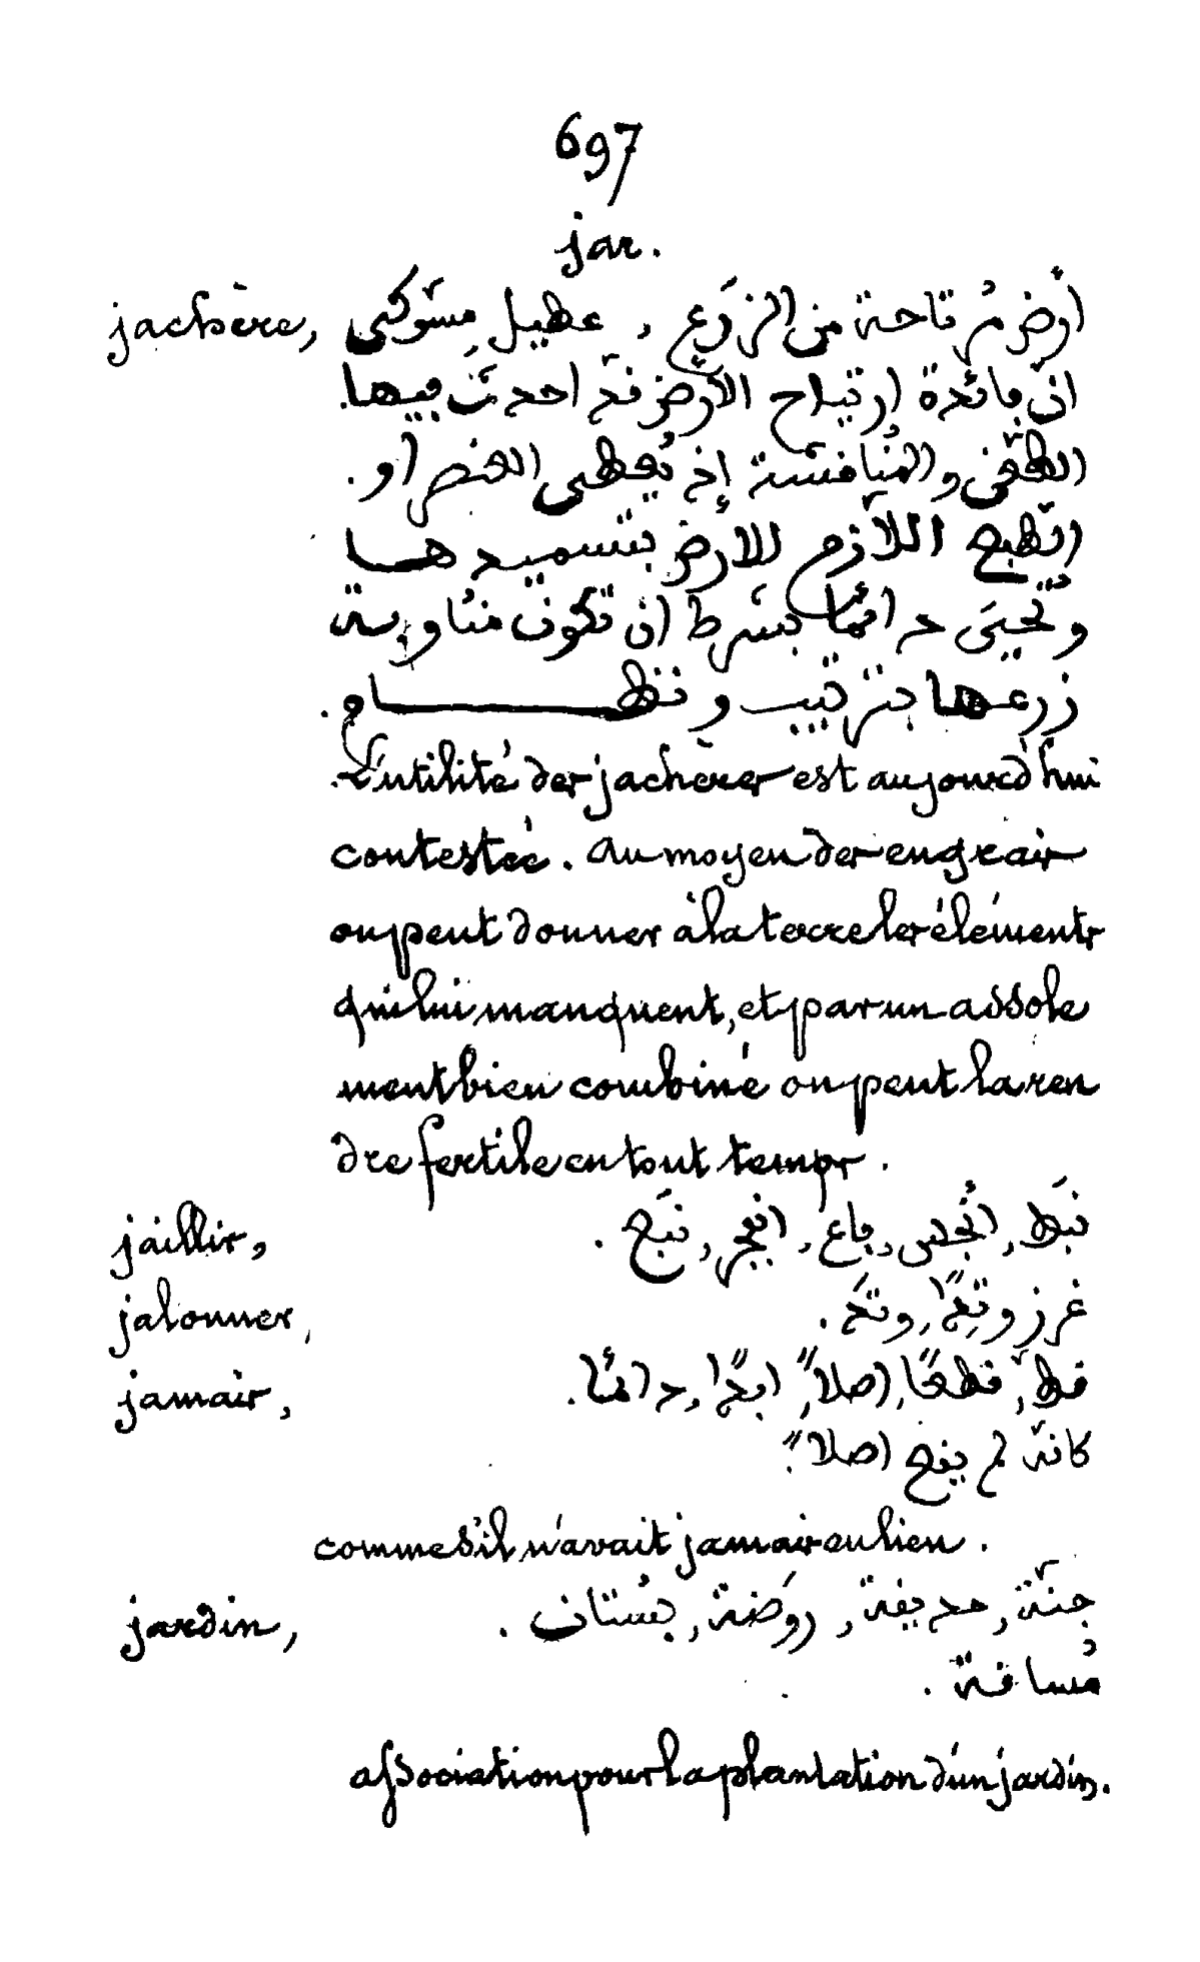 697
jar.
jachère, أرض مُرتاحة من الزرَع، عطيل
انّ فائدة ارتياح الأرض قد احدثت فيها
الطعن والمُنافسَة إذ يُعطى العنصر او
الطبع اللّازم للأرض بتسميدها
وتحيَى دائمًا بشرط ان تكون مناوبة
زرعها بترتيب ونظام.
L'utilité des jachères est aujourd'hui
contestée. Au moyen des engrais
on peut donner à la terre les éléments
qui lui manquent, et par un assole
ment bien combiné on peut la ren
dre fertile en tout temps.
jaillir, نبَط, انْبجس, فاع, انفجر, نبَع.
jalonner, غرز وتِدًا, وتَد.
jamais, قطّ, قطعًا, اصلاً, ابدًا, دائمًا.
كانّه لم يقع اصلاً.
comme s'il n'avait jamais eu lieu.
jardin, جنّة, حديقة, روَضة, بُستان.
مُساقة.
association pour la plantation d'un jardin.